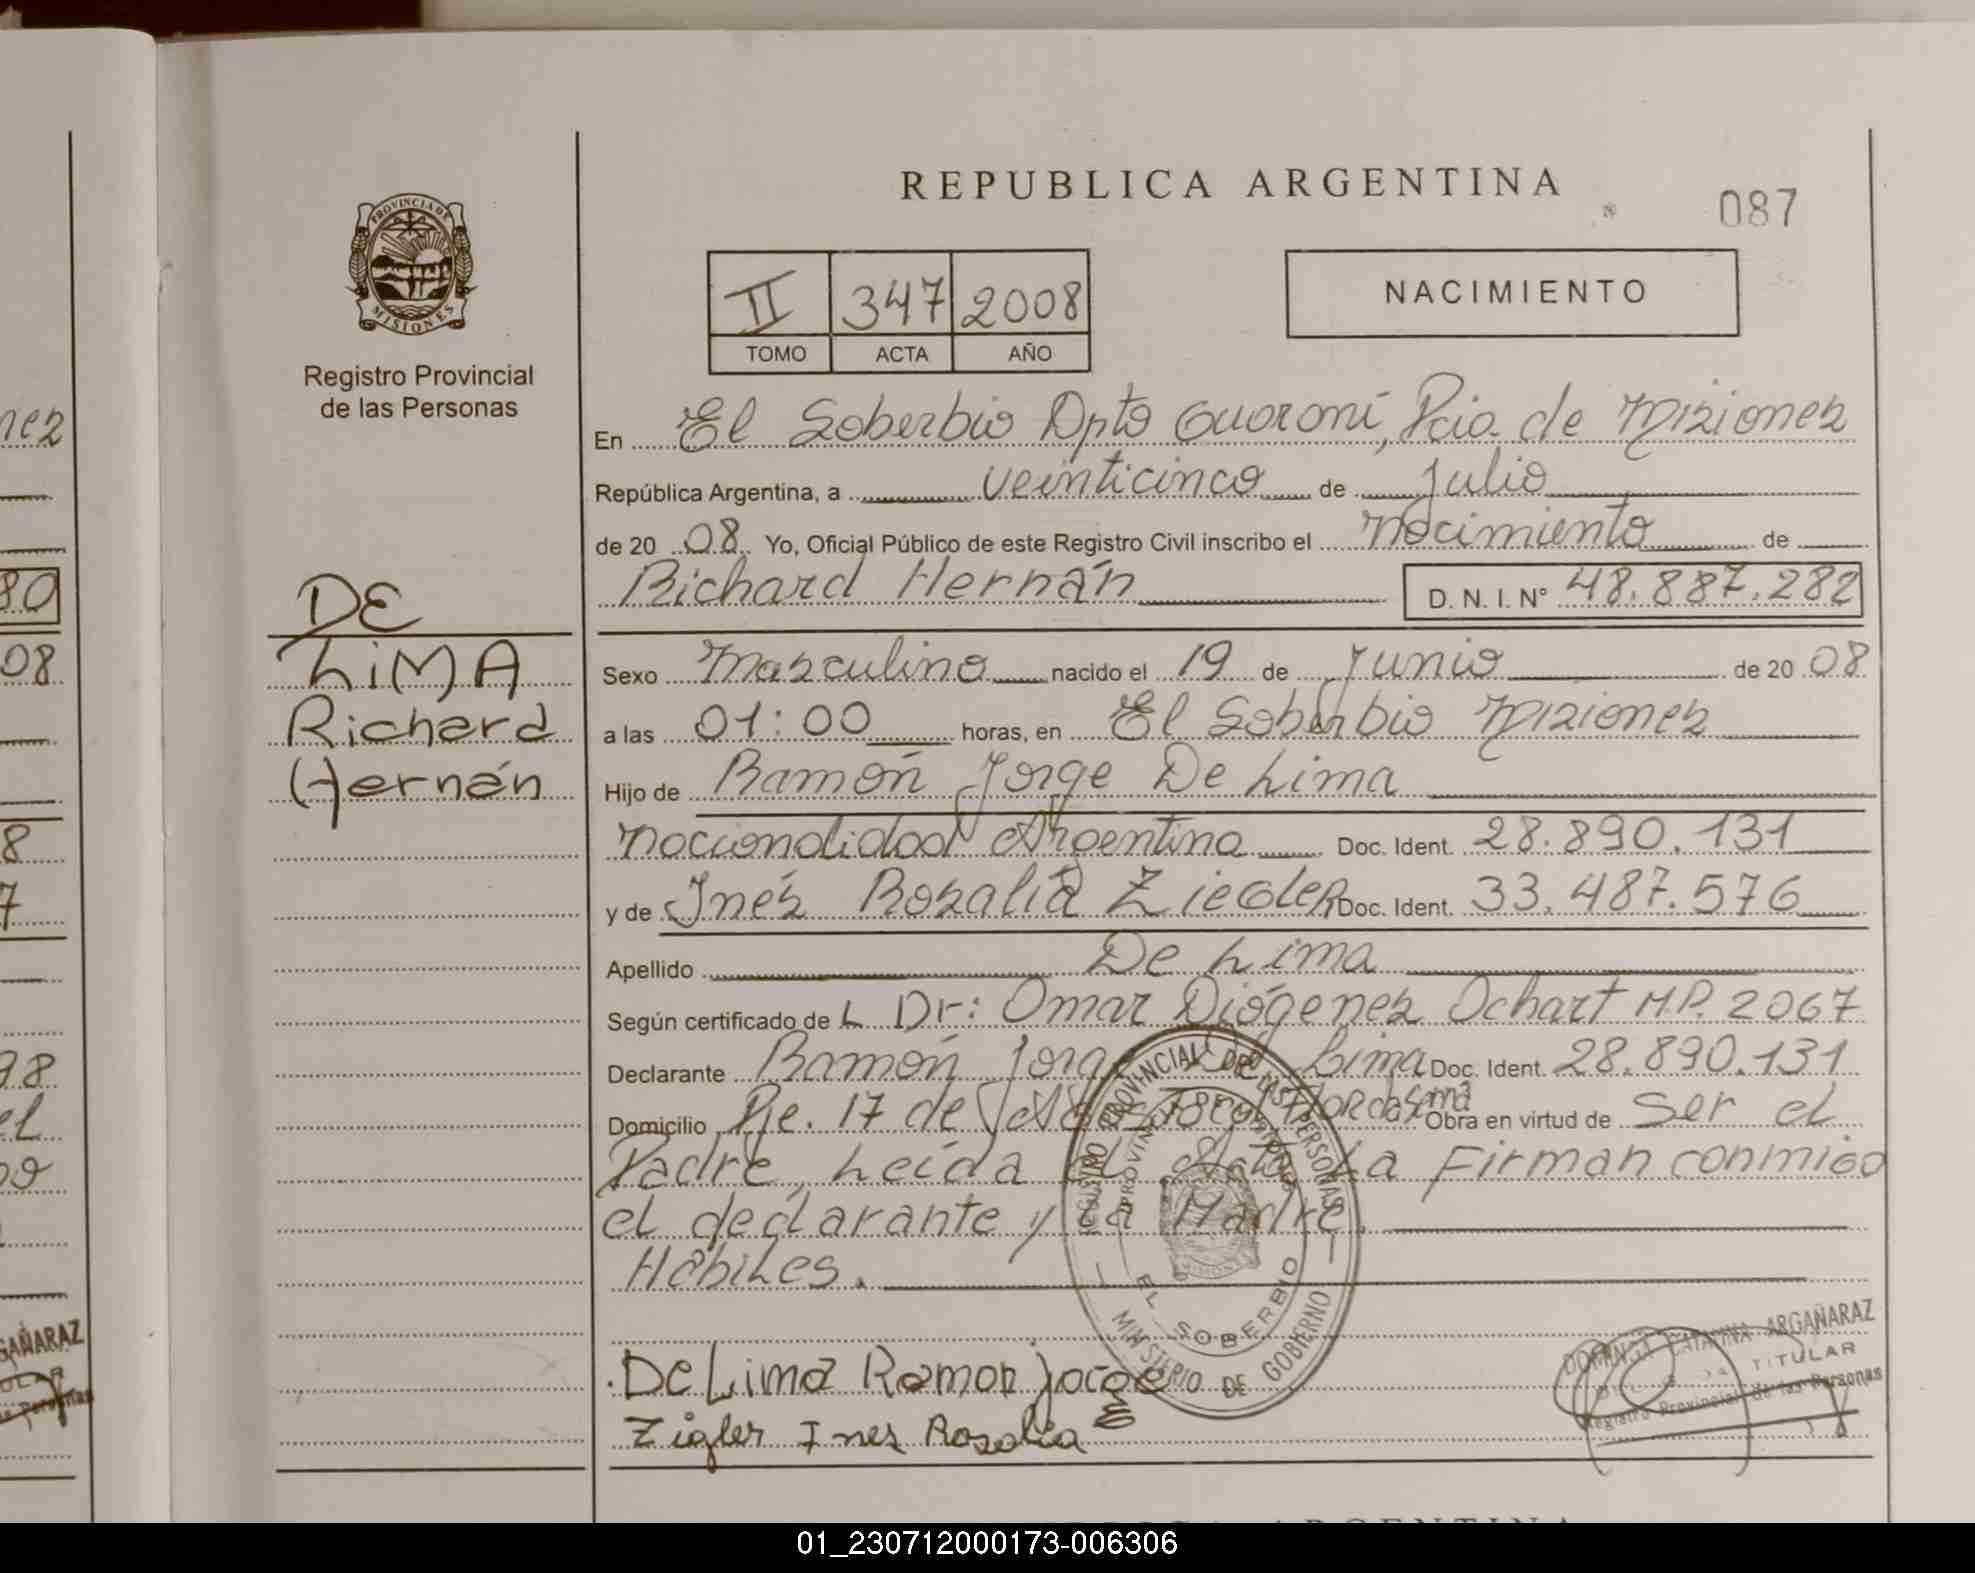 REPUBLICA ARGENTINA
087
PROVINCIA DE
MISIONES
Registro Provincial
de las Personas
II 347 2008
TOMO ACTA AÑO
NACIMIENTO
En El Soberbio Dpto Guaraní, Pcia de Misiones
República Argentina, a veinticinco de Julio
de 20 08 Yo, Oficial Público de este Registro Civil inscribo el nacimiento de
Richard Hernán D. N. I. Nº 48.887.282
DE
LiMA
Richard
Hernán
Sexo Masculino nacido el 19 de Junio de 20 08
a las 01:00 horas, en El Soberbio Misiones
Hijo de Ramón Jorge De Lima
Nacionalidad Argentina Doc. Ident. 28.890.131
y de Inés Rosalía Ziegler Doc. Ident. 33.487.576
Apellido De Lima
Según certificado de L Dr: Omar Diógenes Ochart M.P. 2067
Declarante Ramón Jorge De Lima Doc. Ident. 28.890.131
Domicilio Pje. 17 de Obra en virtud de Ser el
Padre, Leída el Acta La Firman conmigo
el declarante y La Madre.
Hábiles.
REGISTRO PROVINCIAL DE LAS PERSONAS
EL SOBERBIO
MINISTERIO DE GOBIERNO
De Lima Ramon jorge
Zigler Ines Rosalia
DOMINGA CATALINA ARGAÑARAZ
TITULAR
Registro Provincial de las Personas
01_230712000173-006306